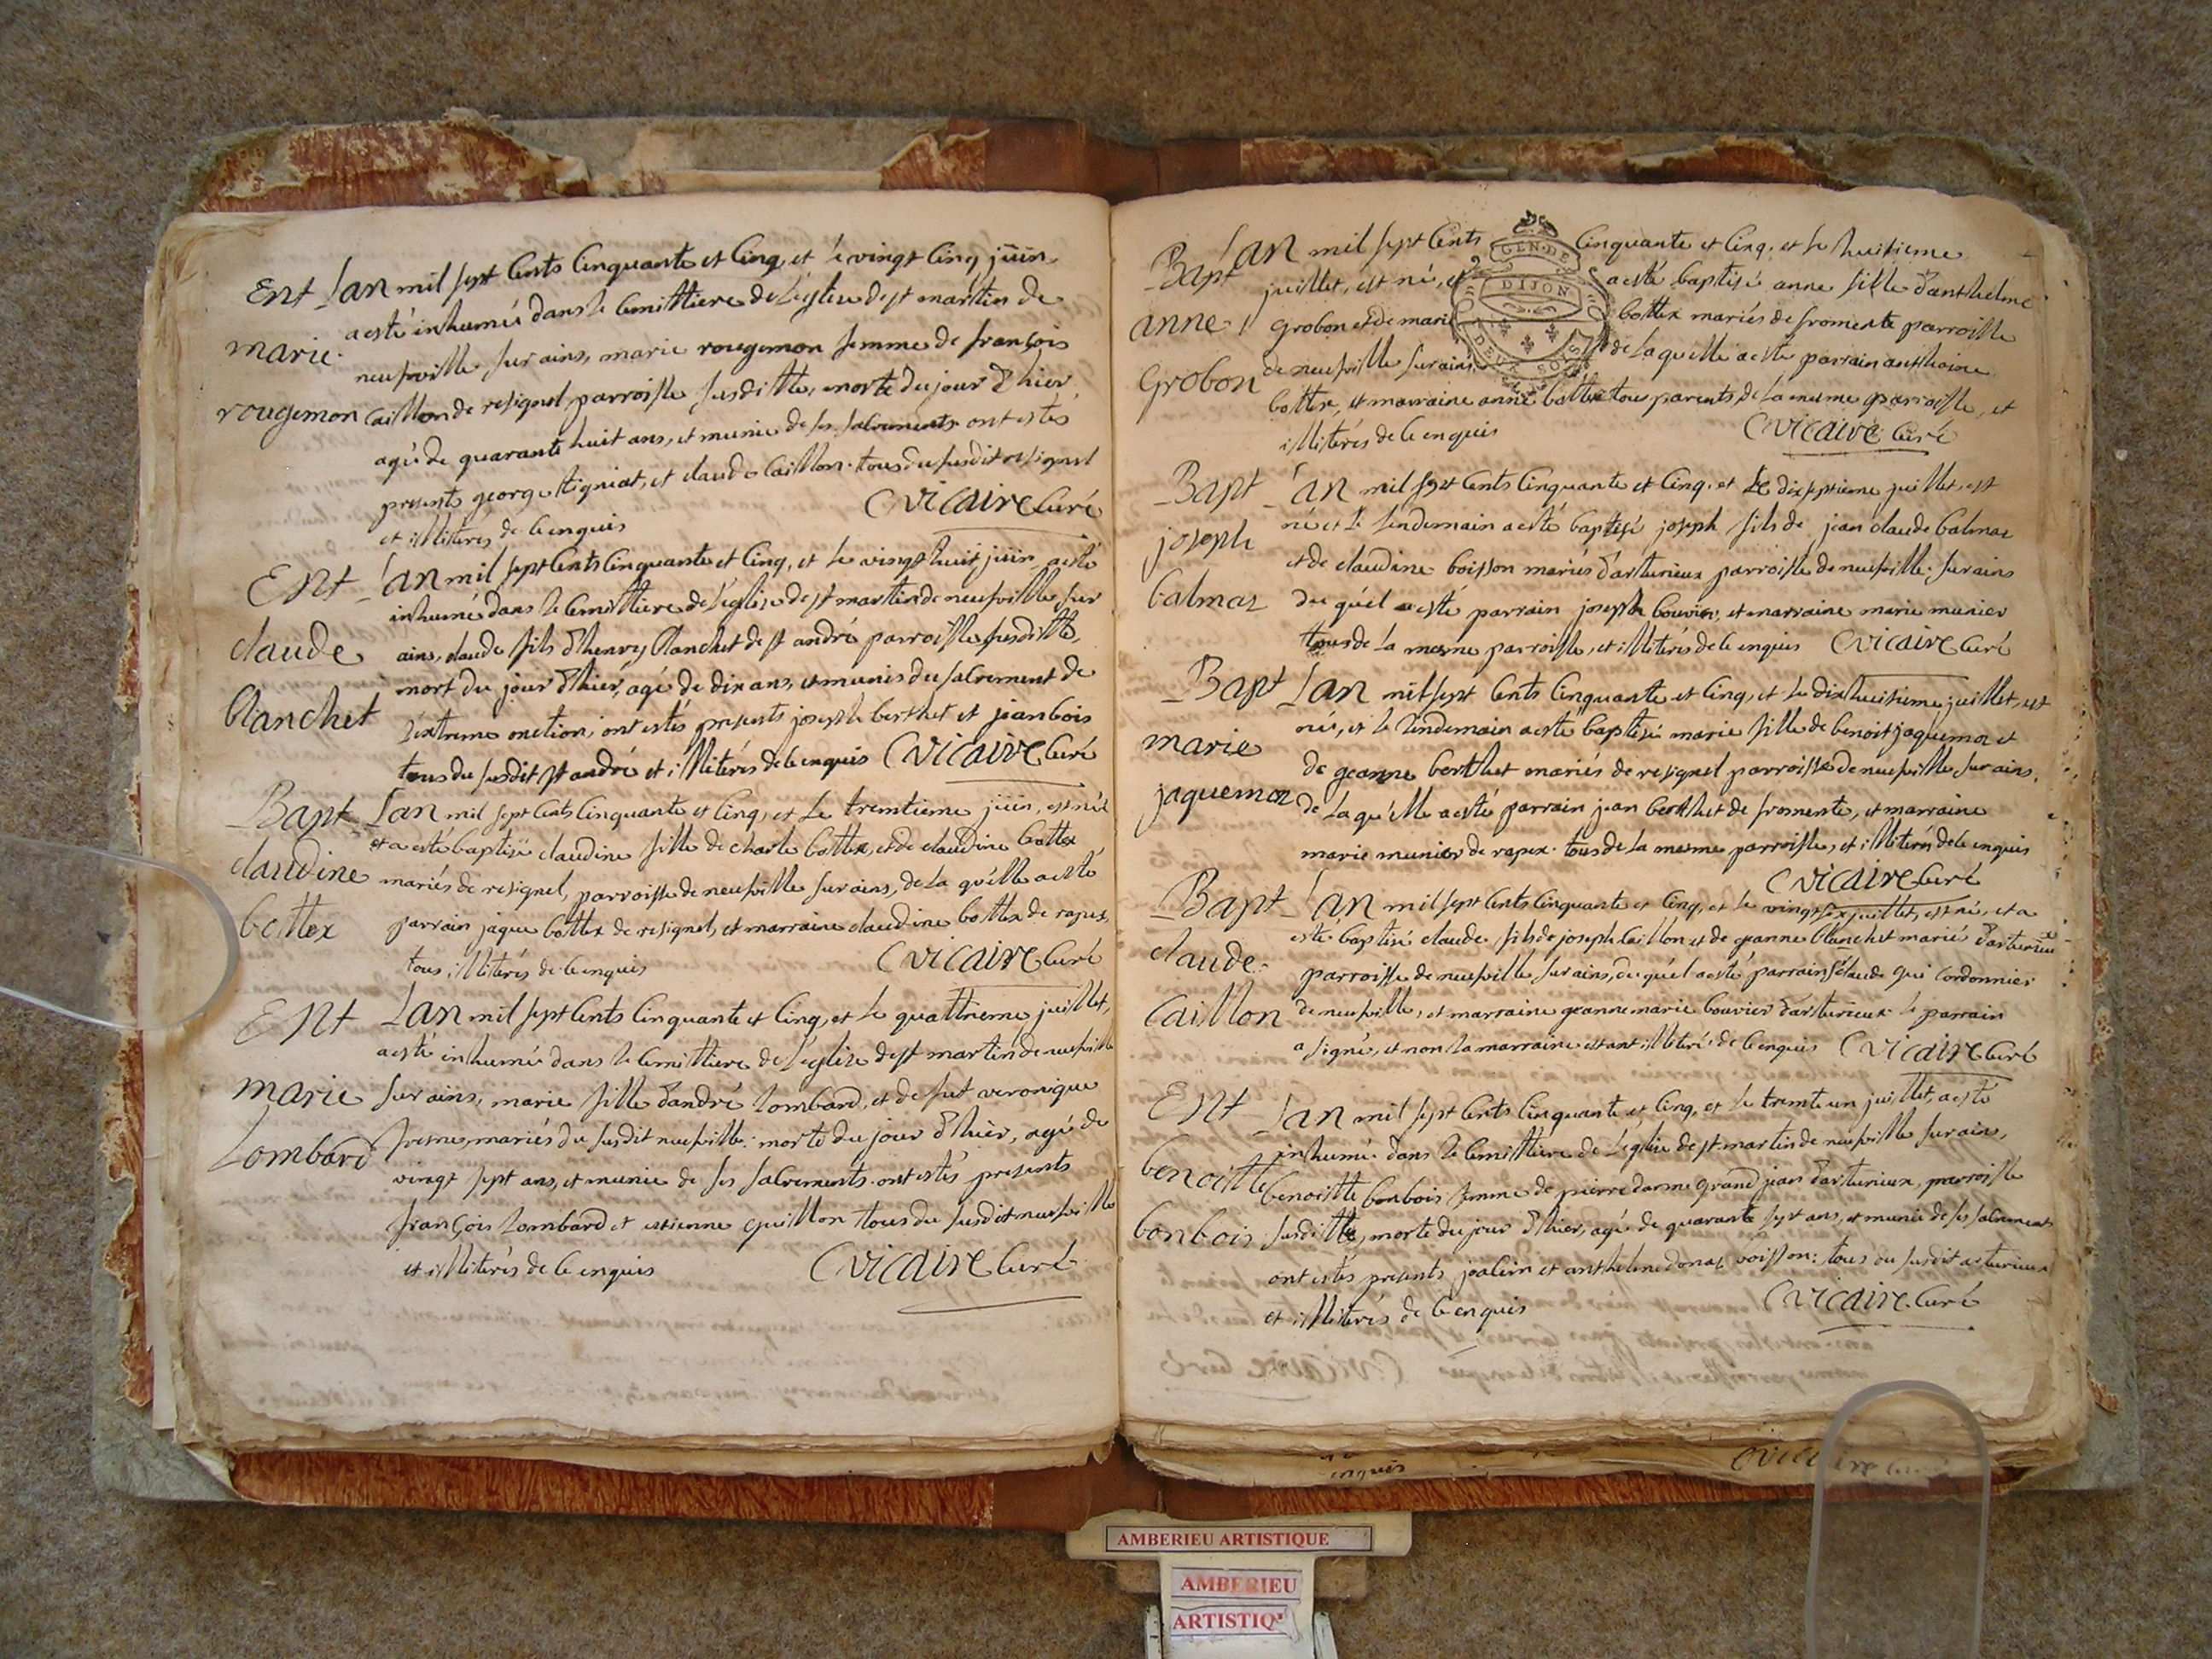 Ent
marie
rougemon
Lan mil sept Cents Cinquante et Cinq, et le vingt Cinq juin,
a esté inhumée dans le Cemittiere de L'église de st martin de
neufville sur ains, marie rougemon femme de françois
Caillon de resignel parroisse susditte, morte du jour d'hier
agé de quarante huit ans, et munie de ses sacrements ont estés
presents george et claude Caillon tous du susdit resignel
et illiterés de ce enquis Cvicaire Curé
Ent
claude
blanchet
Lan mil sept Cents Cinquante et Cinq, et le vingt huit juin a esté
inhumé dans le Cemittiere de L'église de st martin de neufville sur
ains, claude fils d'henry blanchet de st andré parroisse susditte,
mort du jour d'hier, agé de dix ans, et munis du sacrement de
l'extreme onction, ont estés presents joseph berthet et jean bois
tous du susdit st andré et illiterés de ce enquis Cvicaire Curé
Bapt
claudine
bottex
Lan mil sept Cents Cinquante et Cinq, et Le trentieme juin, est née
et a esté baptisée claudine fille de charle bottex, et de claudine bottex
mariés de resignel, parroisse de neufville sur ains, de la qu'elle a esté
parrain jaque bottex de resignel, et marraine claudine bottex de rapex,
tous illiterés de ce enquis Cvicaire Curé
Ent
marie
Lombard
Lan mil sept Cents Cinquante et Cinq, et Le quattrieme juillet,
a esté inhumée dans le Cemittiere de L'église de st martin de neufville
sur ains, marie fille d'andré Lombard, et de fut veronique
mariés du susdit neufville: morte du jour d'hier, agé de
vingt sept ans, et munie de ses sacrements. ont estés presents
françois Lombard et estienne quillon tous du susdit neufville
et illiterés de ce enquis Cvicaire Curé
GEN. DE
DIJON
DEUX SOLS
Bapt
anne
Grobon
Lan mil sept Cents Cinquante et Cinq, et le huitieme
juillet, est né, et a esté baptisé anne fille d'anthelme
Grobon et de marie bottex mariés de fromente parroisse
de neufville sur ains, de la quelle a esté parrain anthoine
bottex, et marraine anne bottex tous parents, de La meme parroisse, et
illiterés de ce enquis Cvicaire Curé
Bapt
joseph
Calmaz
Lan mil sept Cents Cinquante et Cinq, et Le dixseptieme juillet, est
né et le Lendemain a esté baptisé joseph fils de jean claude Calmaz
et de claudine boisson mariés d'arturieux parroisse de neufville sur ains
du quél a esté parrain joseph bouvier, et marraine marie munier
tous de La mesme parroisse, et illiterés de ce enquis Cvicaire Curé
Bapt
marie
jaquemoz
Lan mil sept Cents Cinquante et Cinq, et Le dixhuitieme juillet, est
née, et le Lendemain a esté baptisée marie fille de benoist jaquemoz et
de geanne berthet mariés de resignel parroisse de neufville sur ains,
de La qu'elle a esté parrain jean berthet de fromente, et marraine
marie munier de rapex. tous de la mesme parroisse, et illiterés de ce enquis
Cvicaire Curé
Bapt
claude
Caillon
Lan mil sept Cents Cinquante et Cinq, et le vingt six juillet, est né, et a
esté baptisé claude fils de joseph Caillon et de geanne blanchet mariés d'arturieux
parroisse de neufville sur ains, du quél a esté parrain claude qui Cordonnier
de neufville, et marraine geanne marie bouvier d'arturieux le parrain
a signé, et non La marraine estant illiteré de ce enquis Cvicaire Curé
Ent
benoistte
bonbois
Lan mil sept Cents Cinquante et Cinq, et Le trente un juillet, a esté
inhumée dans le Cemittiere de L'eglise de st martin de neufville sur ains,
benoistte bonbois femme de pierre darme grand jean d'arturieux, parroisse
susditte, morte du jour d'hier, agé de quarante sept ans, et munie de ses sacrements
ont estés presents et anthelme voisson: tous du susdit arturieux
et illiterés de ce enquis Cvicaire Curé
enquis
AMBERIEU ARTISTIQUE
AMBERIEU
ARTISTIQ